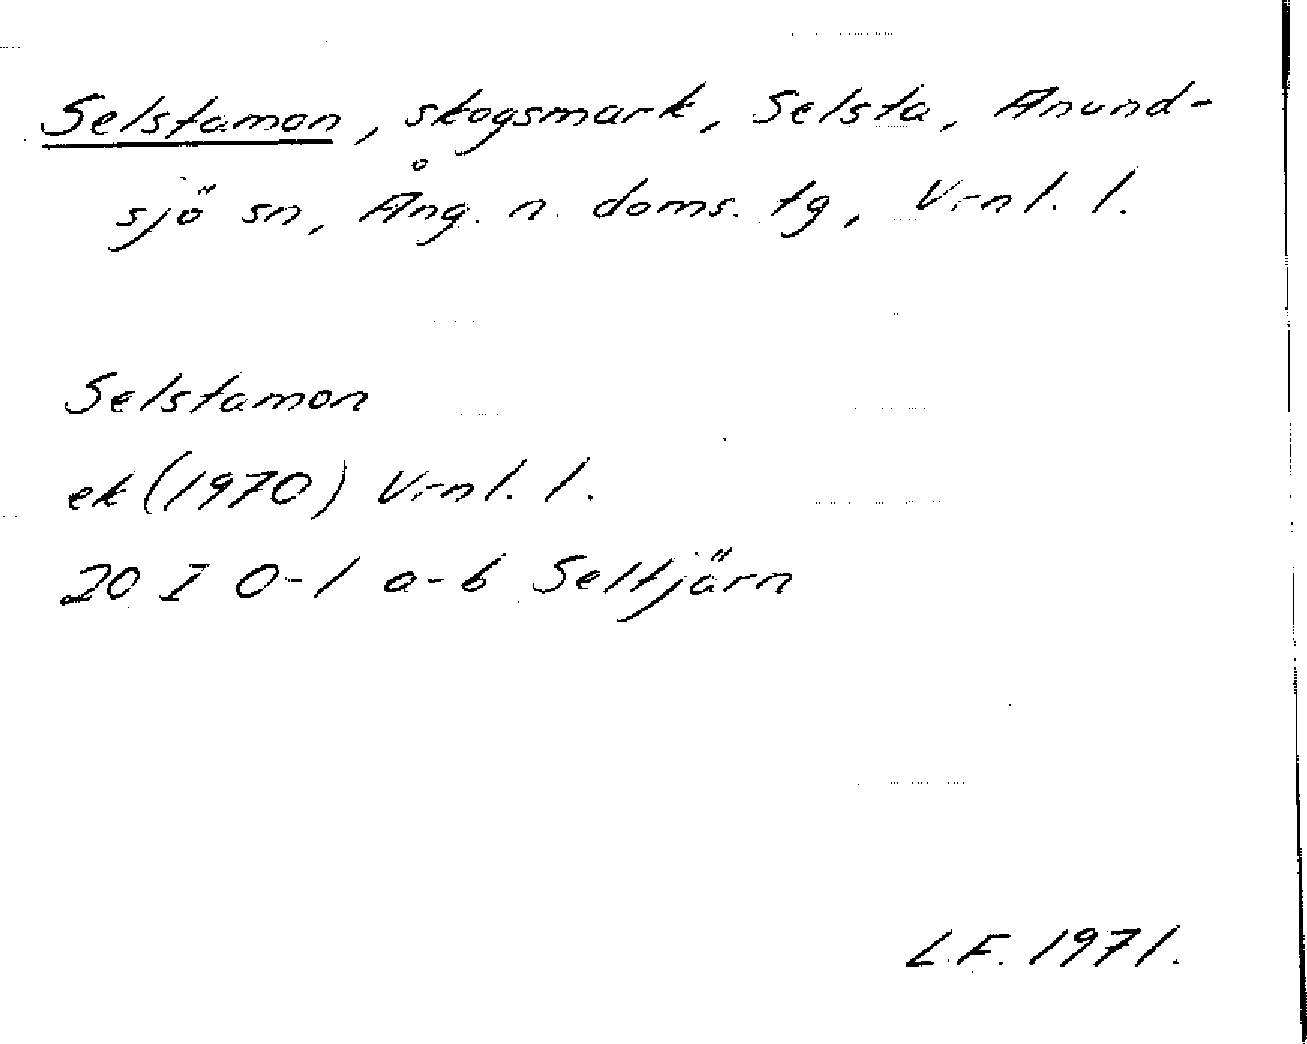 Selstamon, skogsmark, Selsta, Anund-
sjö sn, Ång. n. doms. tg, Vrnl. l.
Selstamon
ek (1970) Vrnl. l.
20 I 0-1 a-b Seltjärn
L.F. 1971.